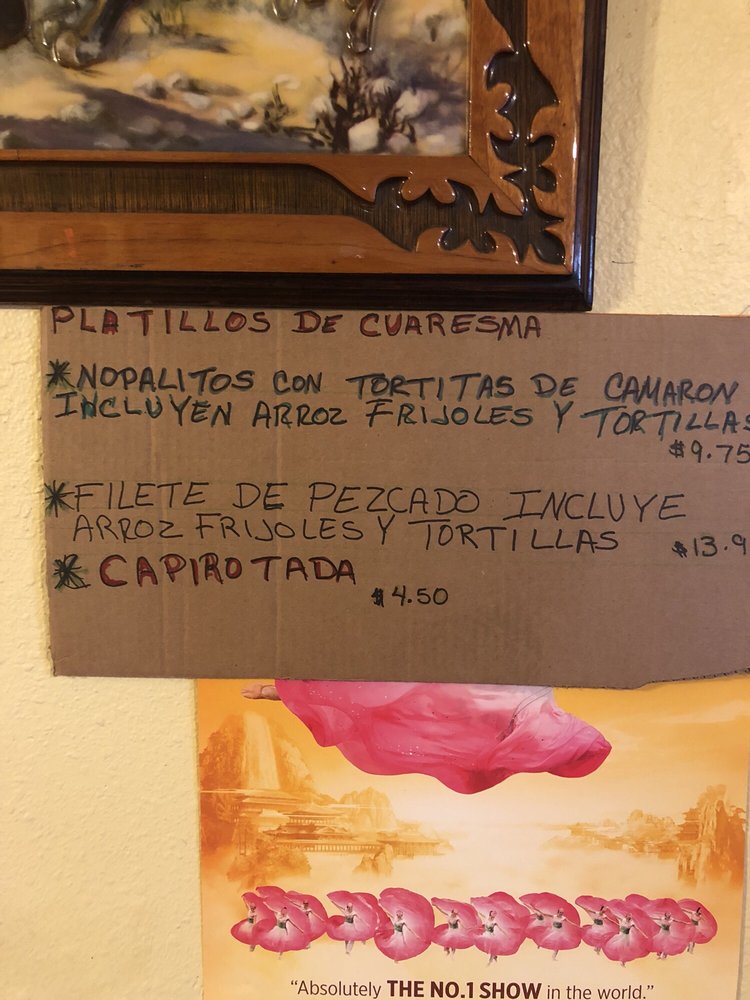 PLATILLOS DE CUARESMA
*NOPALITOS CON TORTITAS DE CAMARON
INCLUYEN ARROZ FRIJOLES Y TORTILLAS
$9.75
*FILETE DE PEZCADO INCLUYE
ARROZ FRIJOLES Y TORTILLAS
$13.9
* CAPIROTADA
$4.50
"Absolutely THE NO.1 SHOW in the world."